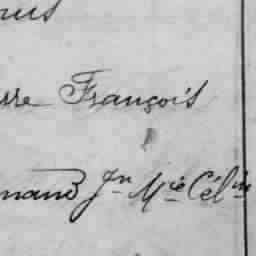 rre François
nand Jn Mie Célin